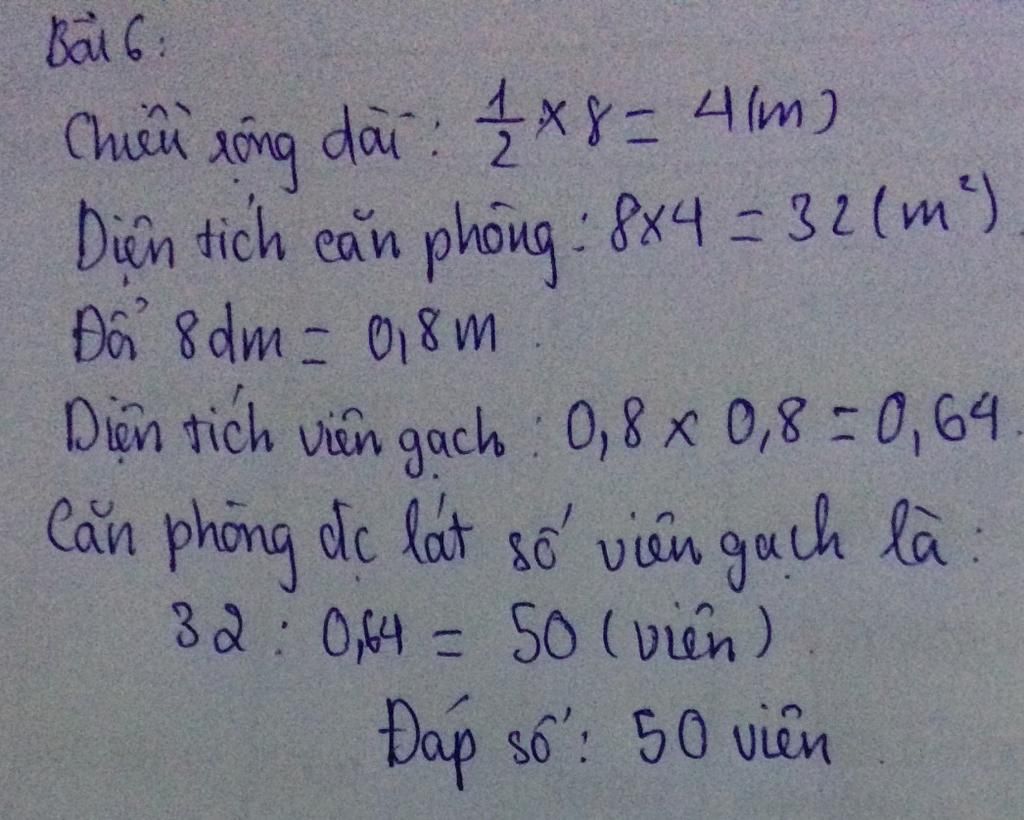 Bài 6:
Chiều rộng dài: 1/2 × 8 = 4(m)
Diện tích căn phòng: 8×4 = 32 (m²).
Đổi 8dm = 0,8m.
Diện tích viên gạch: 0,8 × 0,8 = 0,64.
Căn phòng đc lát số viên gạch là:
32 : 0,64 = 50 (viên).
Đáp số: 50 viên.